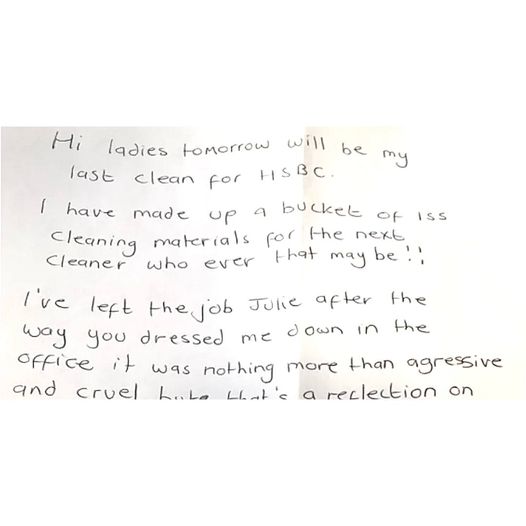 Hi ladies tomorrow will be my
last clean for HSBC.
I have made up a bucket of ISS
cleaning materials for the next
cleaner who ever that may be!!
I've left the job Julie after the
way you dressed me down in the
office it was nothing more than agressive
and cruel that's a reclection on